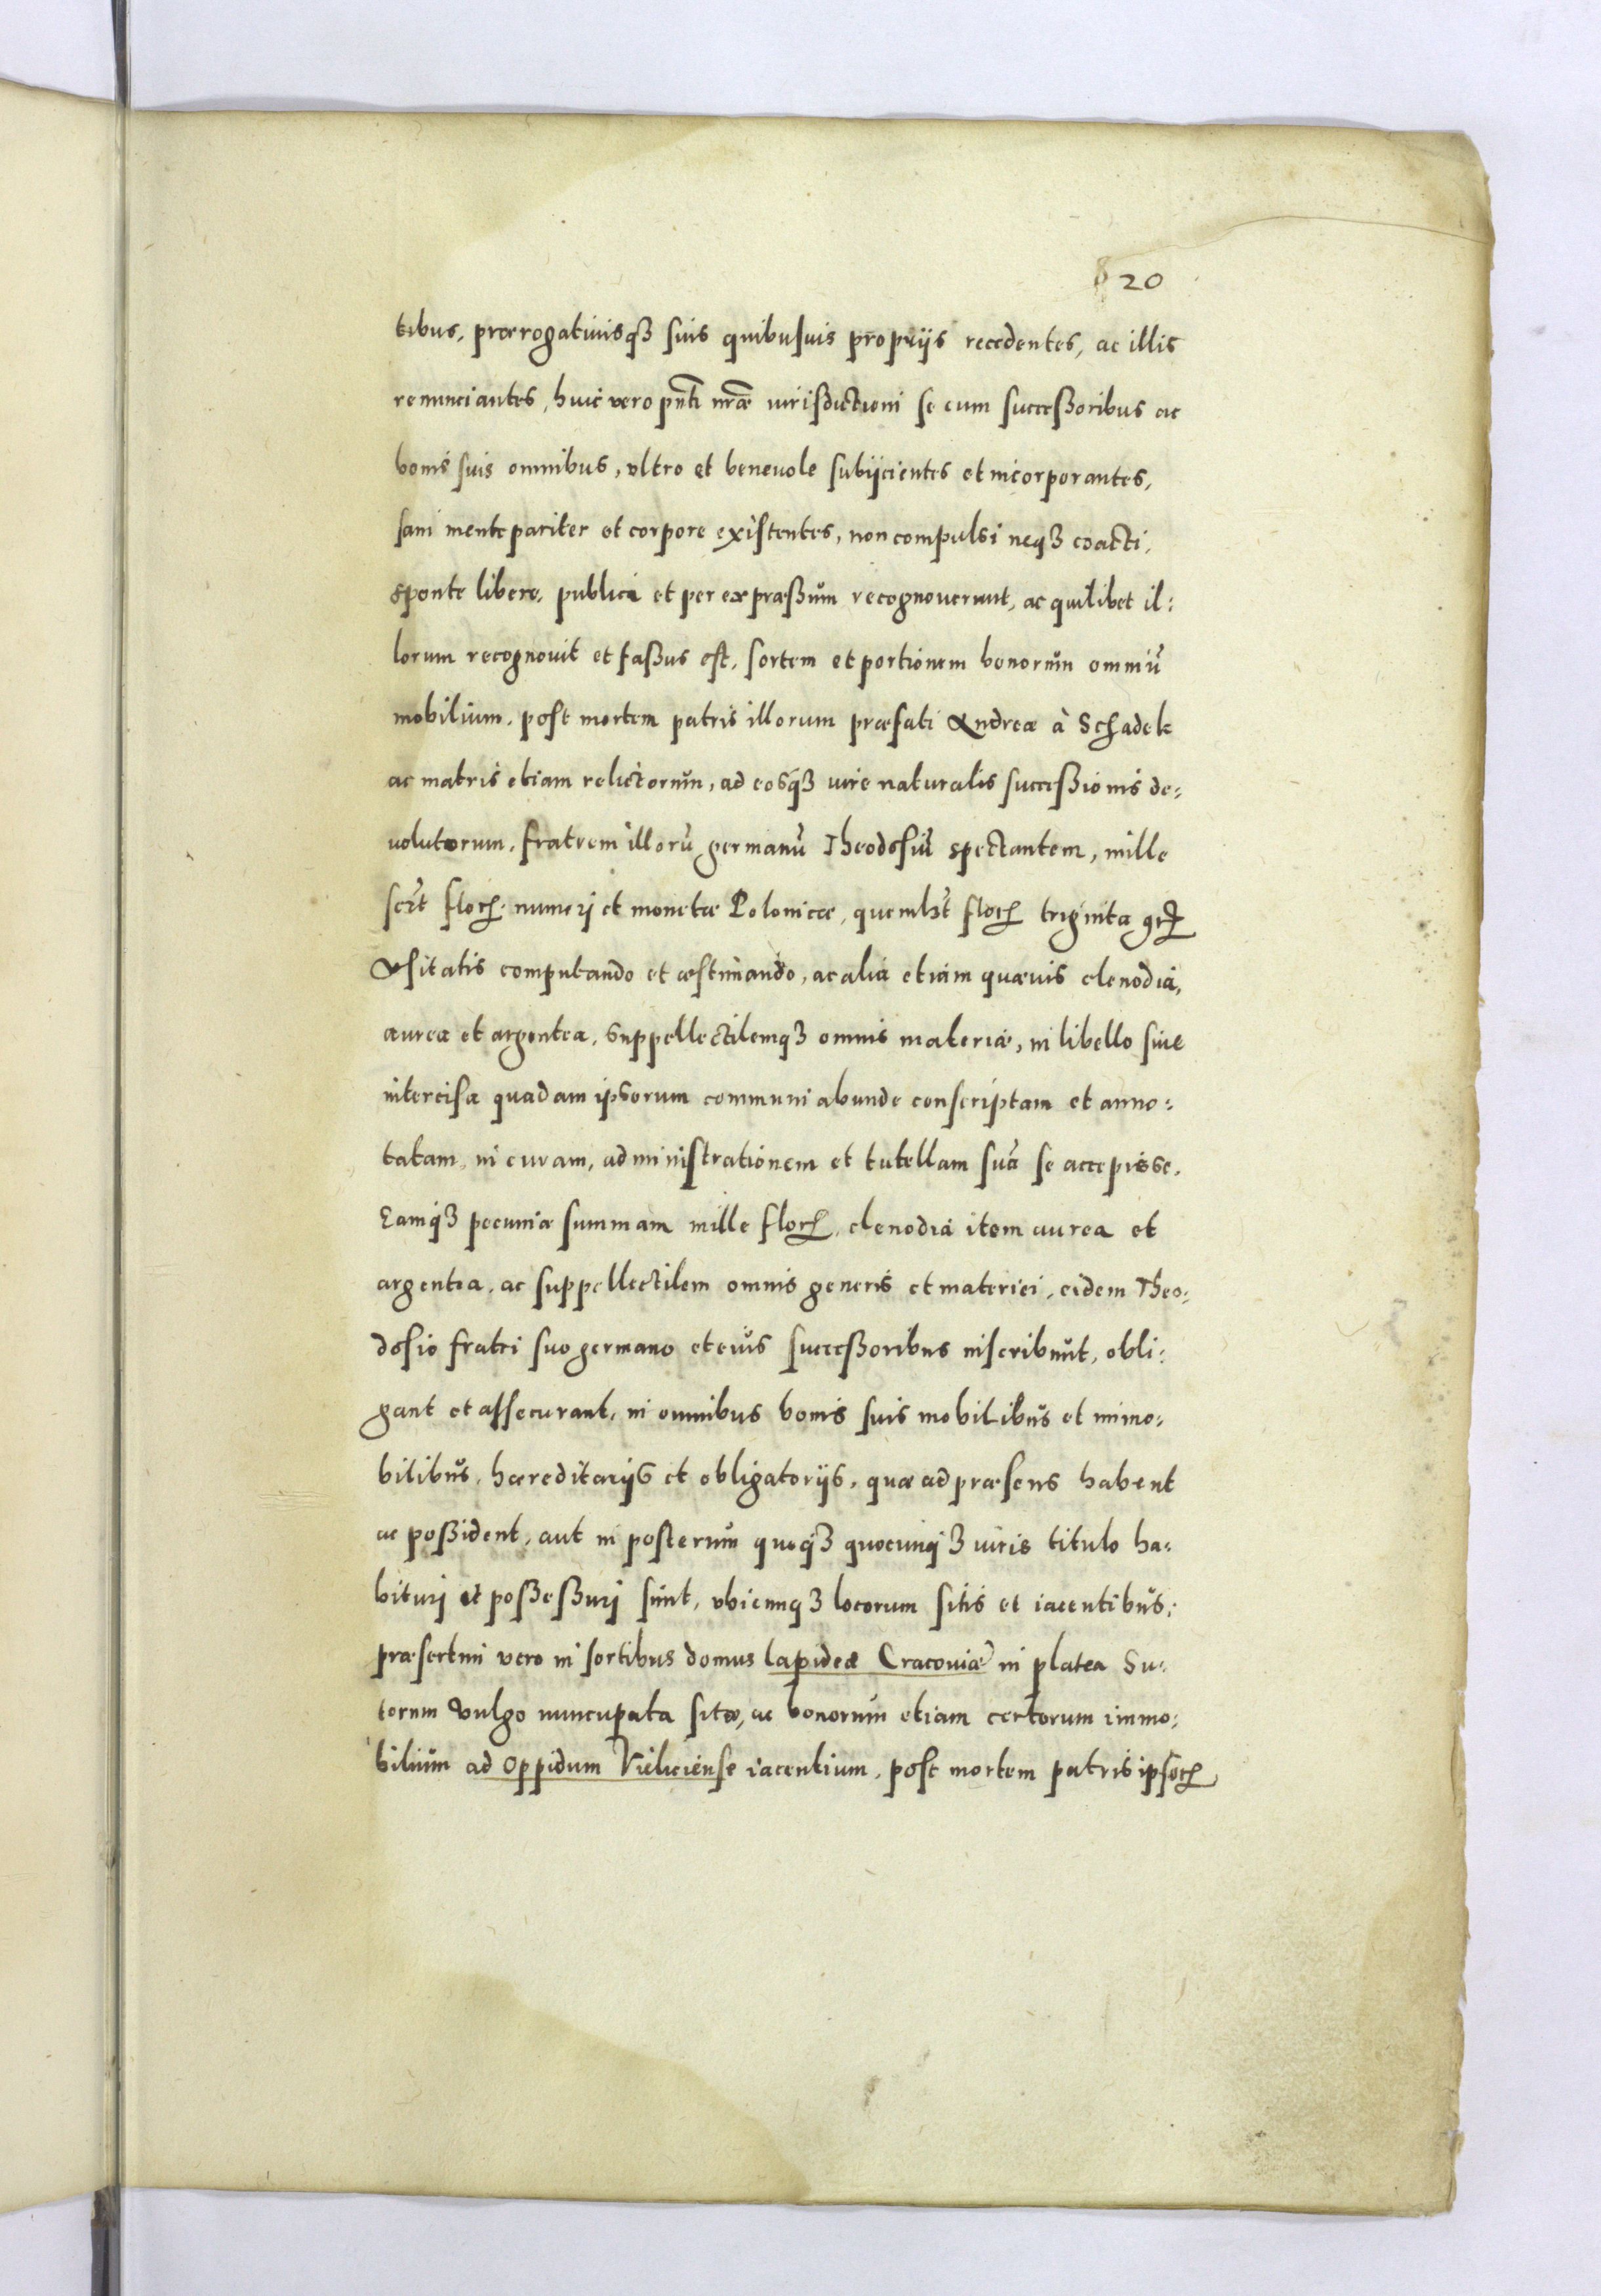 20
tibus, prærogativisqꝫ suis quibusvis proprijs recedentes, ac illis
renunciantes, huic vero pn̄ti nr̄æ iurisdictioni se cum succeßoribus ac
bonis suis omnibus, vltro et benevole subijcientes et incorporantes,
sani mente pariter et corpore existentes, non compulsi neqꝫ coacti,
sponte libere, publice et per expræßum recognoverunt, ac quilibet il:
lorum recognovit et faßus est, sortem et portionem bonorum omniū
mobilium, post mortem patris illorum præfati Andreæ à Schadek
ac matris etiam relictorum, ad eosqꝫ iure naturalis succeßionis de:
volutorum, fratrem illorū germanū Theodosiū spectantem, mille
scꝫt floꝝ numeri et monetæ Polonicæ, quemlꝫt floꝝ triginta gꝝ
vsitatis computando et æstimando, ac alia etiam quævis clenodia,
aurea et argentea, suppellectilemqꝫ omnis materiæ, in libello sive
intercisa quadam ipsorum communi abunde conscriptam et anno:
tatam, in curam, administrationem et tutellam suā se accepisse.
Eamqꝫ pecuniæ summam mille floꝝ, clenodia item aurea et
argentea, ac suppellectilem omnis generis et materiei, eidem Theo:
dosio fratri suo germano et eius succeßoribus inscribunt, obli:
gant et assecurant, in omnibus bonis suis mobilibus et immo:
bilibus, hæreditarijs et obligatorijs, quæ ad præsens habent
ac poßident, aut in posterum quoqꝫ quocunqꝫ iuris titulo ha:
bituri et poßeßuri sunt, vbicunqꝫ locorum sitis et iacentibus;
præsertim vero in sortibus domus lapideæ Cracoviæ in platea Su:
torum vulgo nuncupata sitæ, ac bonorum etiam certorum immo:
bilium ad oppidum Vieliciense iacentium, post mortem patris ipsoꝝ